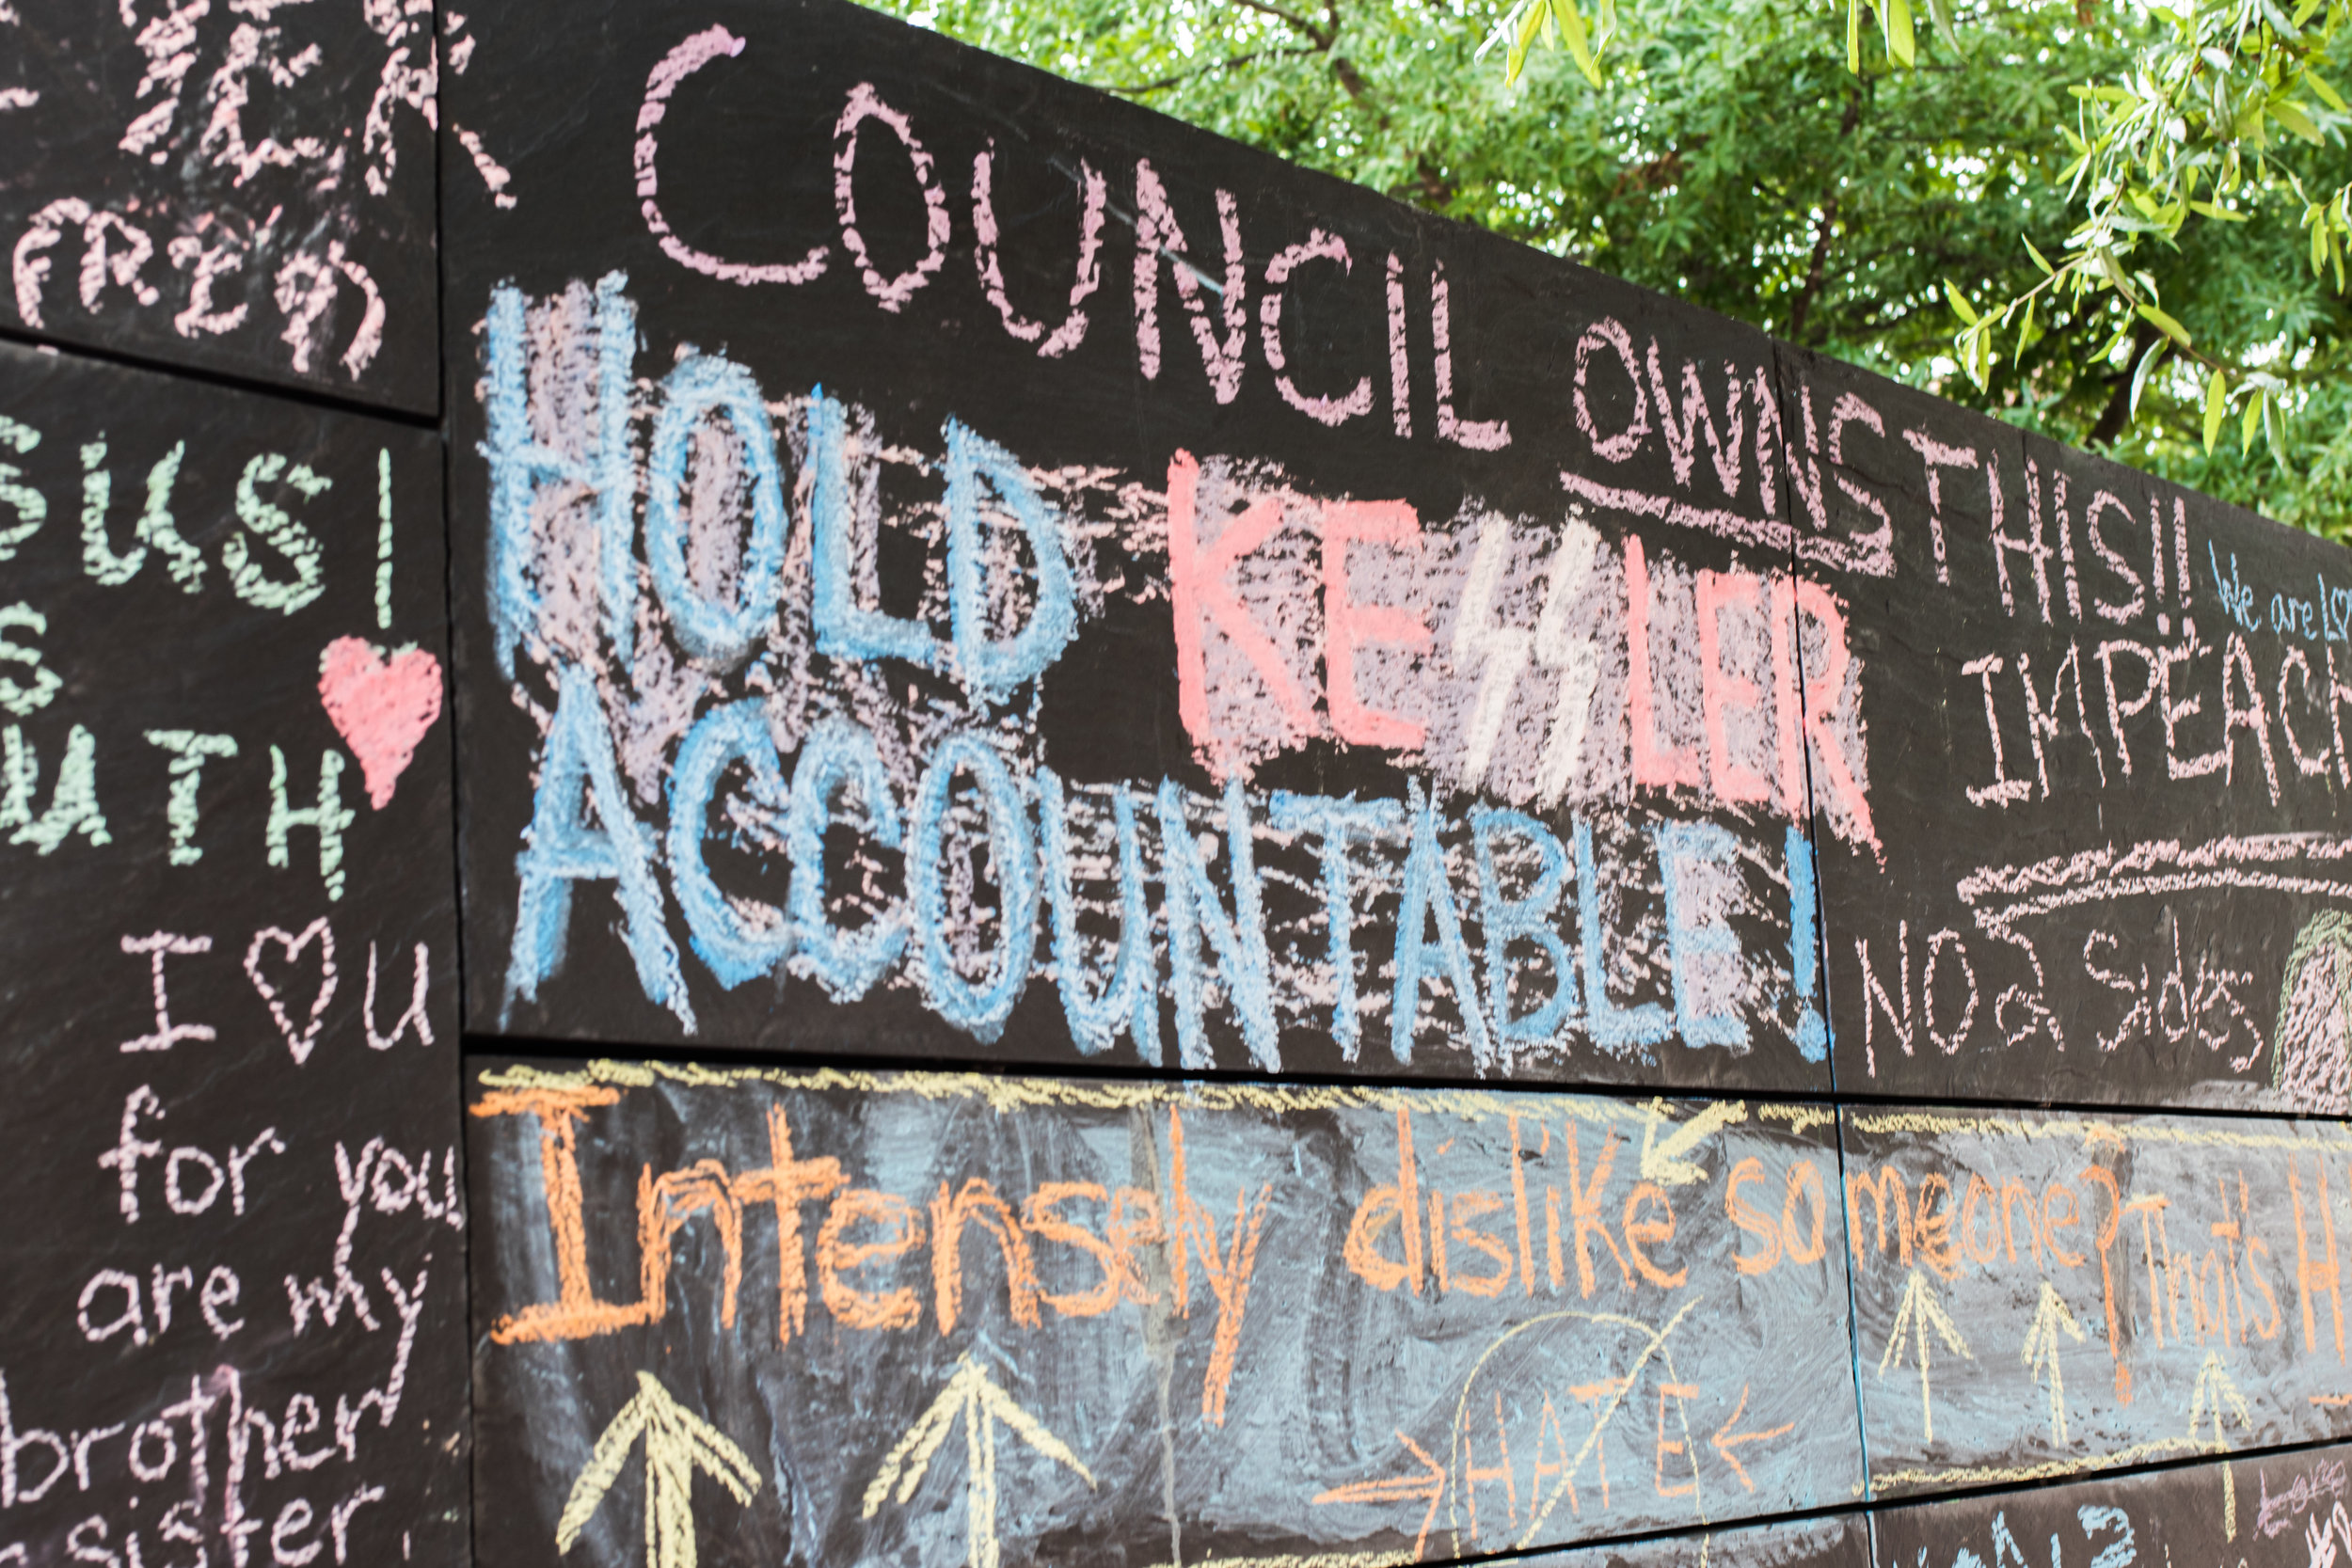 FRED
SUS!
UTH
I ♥ U
for you
are my
brother
sister.
COUNCIL OWNS THIS!!
HOLD KEϟϟLER
ACCOUNTABLE!
We are
IMPEACH
NO 2 Sides
Intensely dislike someone? That's
→HATE←